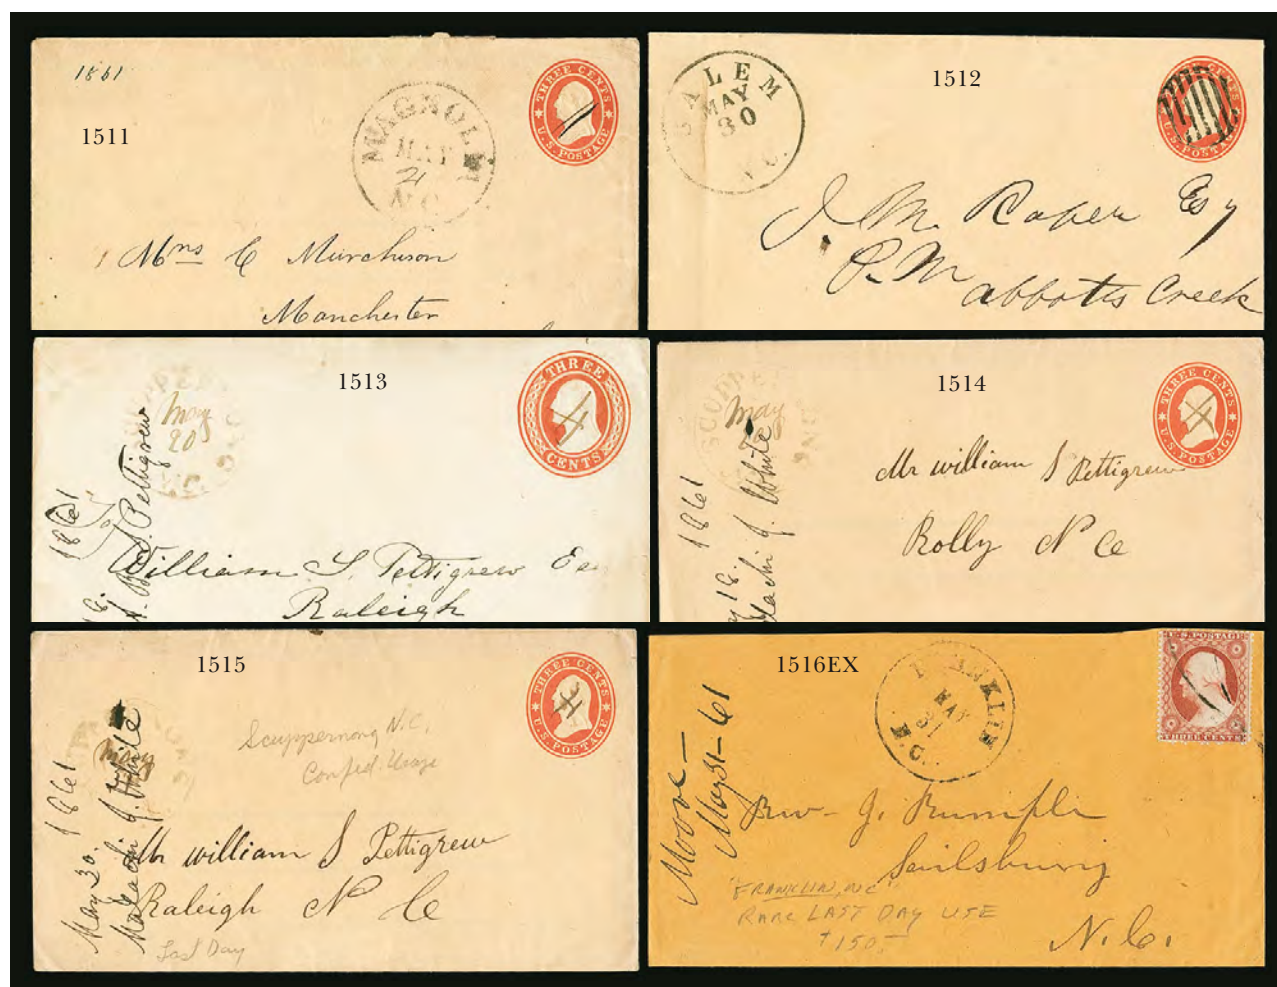 1861
1511
MAGNOLIA
MAY
21
N.C.
THREE CENTS
U.S. POSTAGE
Mrs C Murchison
Manchester
SALEM
MAY
30
N.C.
1512
CENTS
U.S. POSTAGE
J. M. Raper Esq
P. M
abbotts Creek
1513
May
20
N.C.
THREE
CENTS
1861
Pettigrew
To
William S. Pettigrew Esq
Raleigh
SCUPPE
May
1514
THREE CENTS
U.S. POSTAGE
1861
Malachi J. White
Mr william S Pettigrew
Rolly N Ca
1515
THREE CENTS
U.S. POSTAGE
May
May 30. 1861
Malachi J. White
Scuppernong N.C.
Confed. Usage
Mr william S Pettigrew
Raleigh N Ca
Last Day
1516EX
FRANKLIN
MAY
31
N.C.
U.S. POSTAGE
THREE CENTS
Moore -
May 31-61
Rev- J. Rumple
Sailsburig
N. C.
"FRANKLIN, NC"
RARE LAST DAY USE
+150-